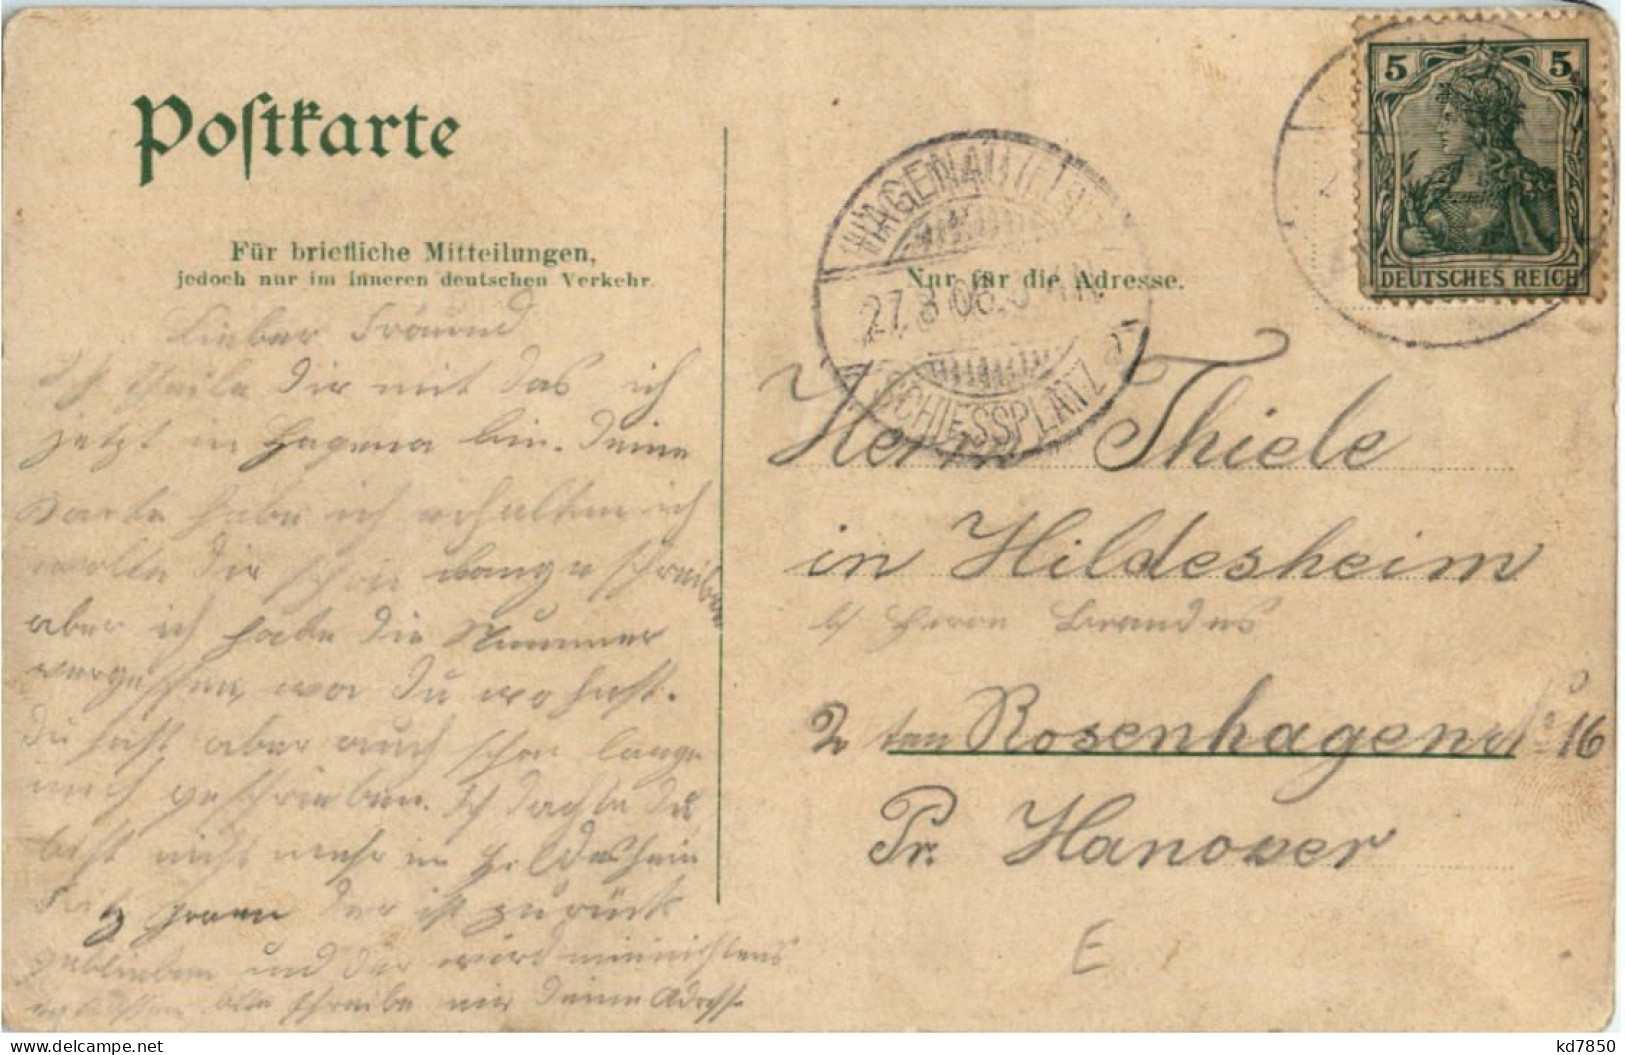 Postkarte
Für briefliche Mitteilungen,
jedoch nur im inneren deutschen Verkehr.
Nur für die Adresse.
HAGENAU
27.8.06.
SCHIESSPLATZ
5 5
DEUTSCHES REICH
Lieber Fräund
Ich theile dir mit das ich
jetzt in Hagena bin. Deine
Karte habe ich erhalten ich
wollte dir schon lange schreiben
aber ich habe die Nummer
vergessen, wo du wohnst.
Du hast aber auch schon lange
nich geschrieben. Ich dachte du
bist nicht mehr in Hildesheim
Fritz der ist zurück
geblieben und der wird ministens
entlassen Bitte schreibe mir deine Adresse
Herrn Thiele
in Hildesheim
b/ Herrn Brandes
2 ten Rosenhagen No 16
Pr. Hanover
E
kd7850